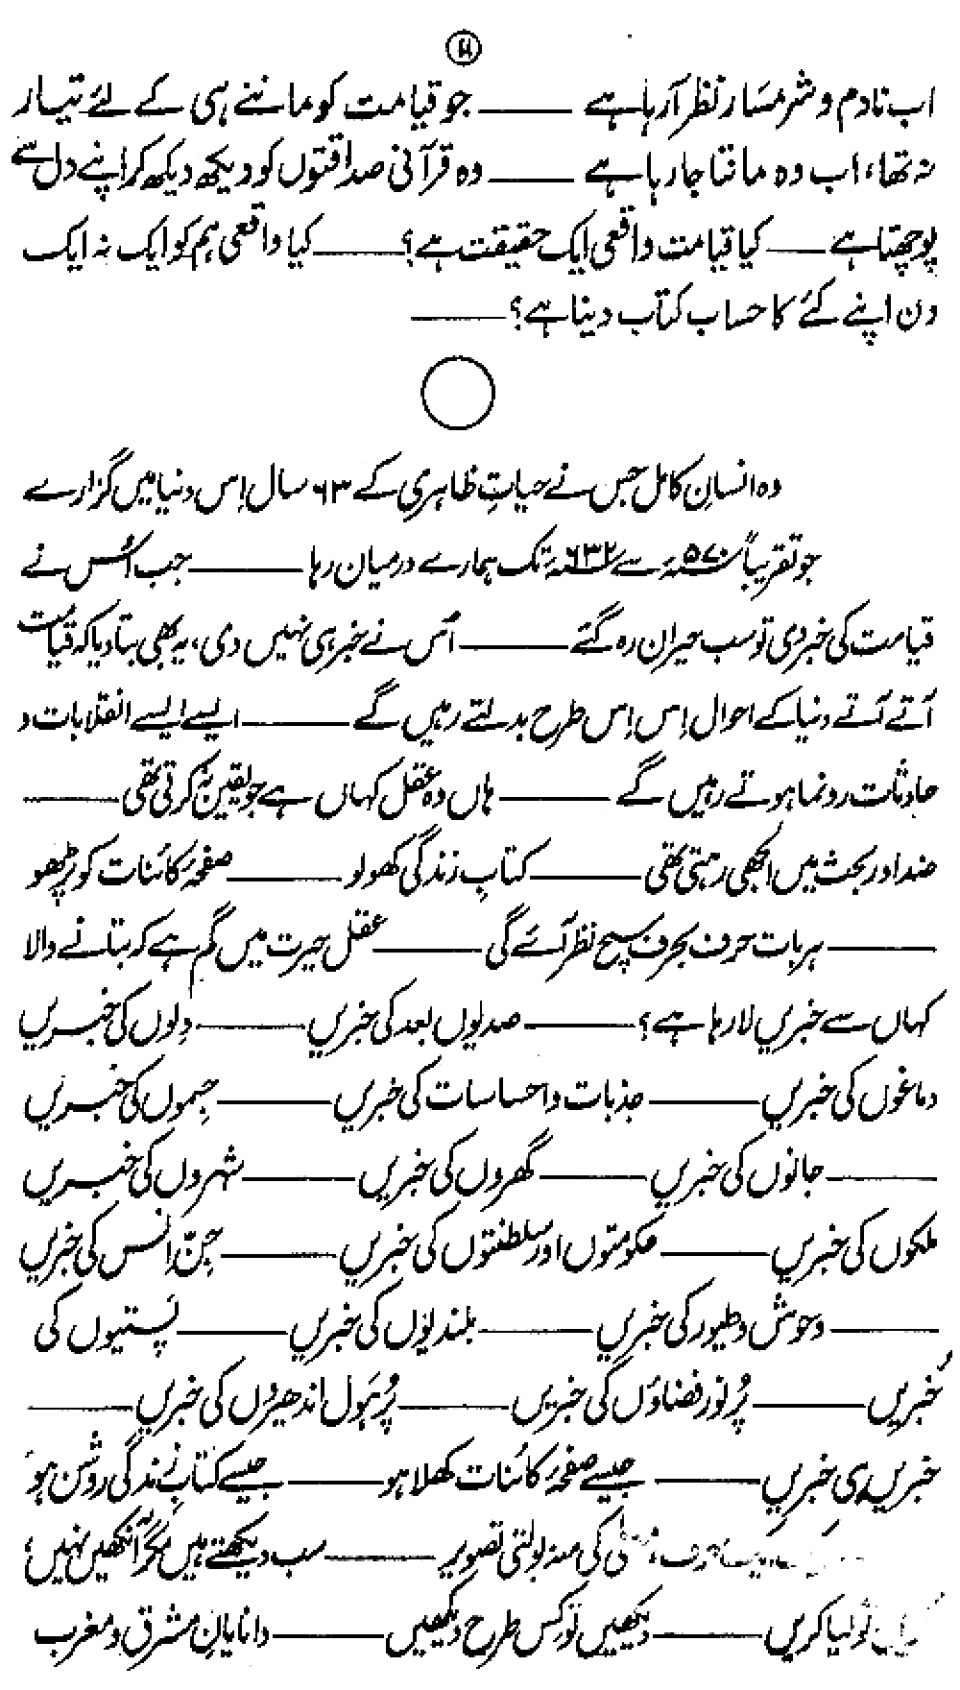 ۱۱
اب نادم و شرمسار نظر آرہا ہے ـــــ جو قیامت کو ماننے ہی کے لئے تیار
نہ تھا، اب وہ مانتا جارہا ہے ـــــ وہ قرآنی صداقتوں کو دیکھ دیکھ کر اپنے دل سے
پوچھتا ہے ـــــ کیا قیامت واقعی ایک حقیقت ہے؟ ـــــ کیا واقعی ہم کو ایک نہ ایک
دن اپنے کئے کا حساب کتاب دینا ہے؟ ـــــ
وہ انسانِ کامل جس نے حیاتِ ظاہری کے ۶۳ سال اِس دنیا میں گزارے
جو تقریباً ۵۷۰ء سے ۶۳۲ء تک ہمارے درمیان رہا ـــــ جب اُس نے
قیامت کی خبر دی تو سب حیران رہ گئے ـــــ اُس نے خبر ہی نہیں دی، یہ بھی بتا دیا کہ قیامت
آتے آتے دنیا کے احوال اِس اِس طرح بدلتے رہیں گے ـــــ ایسے ایسے انقلابات و
حادثات رونما ہوتے رہیں گے ـــــ ہاں وہ عقل کہاں ہے جو یقین نہ کرتی تھی ـــــ
ضد اور بحث میں الجھی رہتی تھی ـــــ کتابِ زندگی کھولو ـــــ صفحۂ کائنات کو پڑھو
ـــــ ہر بات حرف بحرف سچ نظر آئے گی ـــــ عقل حیرت میں گم ہے کہ بتانے والا
کہاں سے خبریں لا رہا ہے؟ ـــــ صدیوں بعد کی خبریں ـــــ دِلوں کی خبریں
دماغوں کی خبریں ـــــ جذبات و احساسات کی خبریں ـــــ جسموں کی خبریں
ـــــ جانوں کی خبریں ـــــ گھروں کی خبریں ـــــ شہروں کی خبریں
ملکوں کی خبریں ـــــ حکومتوں اور سلطنتوں کی خبریں ـــــ جنّ و اِنس کی خبریں
ـــــ وحوش و طیور کی خبریں ـــــ بلندیوں کی خبریں ـــــ پستیوں کی
خبریں ـــــ پُر نور فضاؤں کی خبریں ـــــ پُر ہَول اندھیروں کی خبریں ـــــ
خبریں ہی خبریں ـــــ جیسے صفحۂ کائنات کھلا ہو ـــــ جیسے کتابِ زندگی روشن ہو
حرف، کی منہ بولتی تصویر ـــــ سب دیکھتے ہیں مگر آنکھیں نہیں،
تو کیا کریں ـــــ دیکھیں تو کس طرح دیکھیں ـــــ دانایانِ مشرق و مغرب